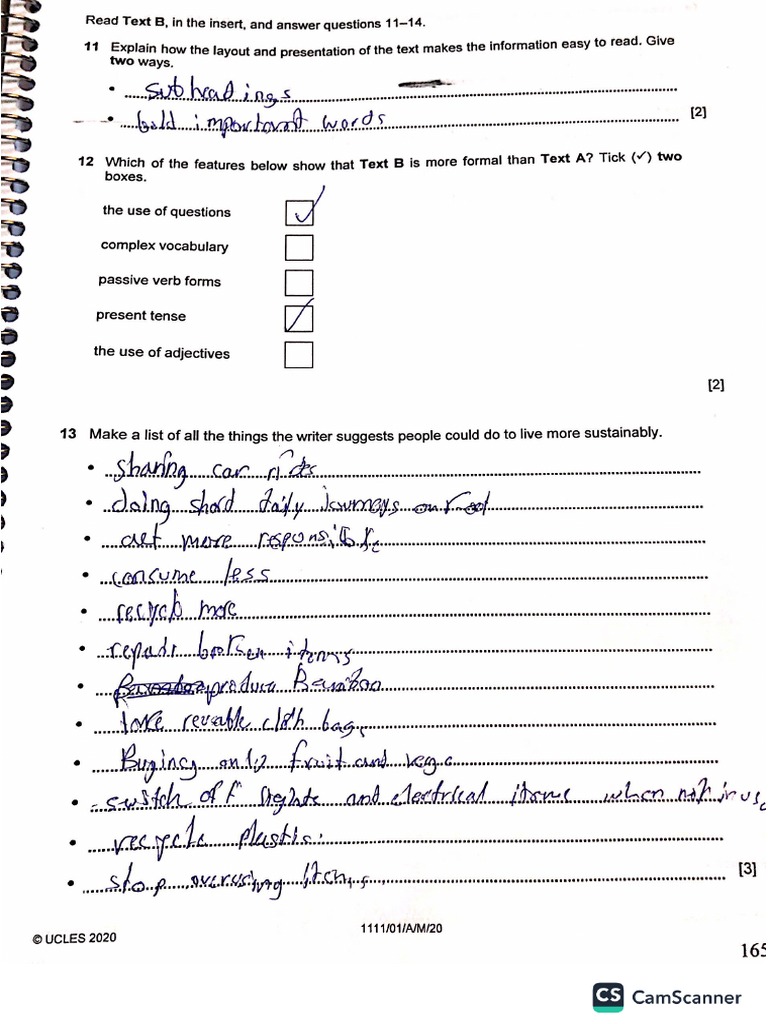 Read Text B, in the insert, and answer questions 11–14.
11 Explain how the layout and presentation of the text makes the information easy to read. Give
two ways.
• subheadings
• bold important words [2]
12 Which of the features below show that Text B is more formal than Text A? Tick (✓) two
boxes.
the use of questions ✓
complex vocabulary
passive verb forms
present tense ✓
the use of adjectives
[2]
13 Make a list of all the things the writer suggests people could do to live more sustainably.
• sharing car rides
• doing short daily journeys on foot
• act more responsible
• consume less
• recycle more
• repair broken items
• produce Bamboo
• take reusable cloth bags
• Buying only fruit and veg
• switch off lights and electrical items when not in use
• recycle plastic.
• stop overusing items [3]
© UCLES 2020
1111/01/A/M/20
165
CS CamScanner